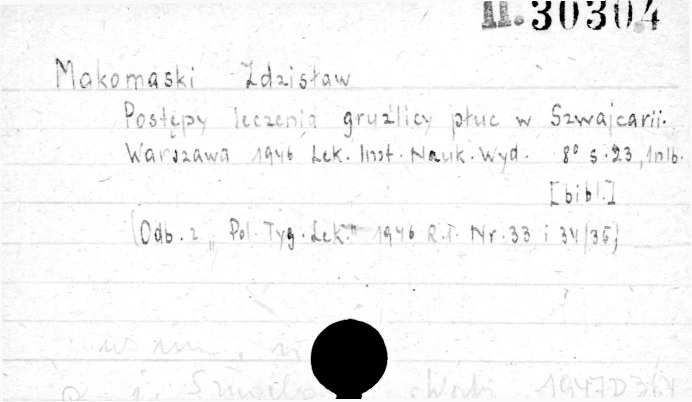 II. 30304
Makomaski Zdzisław
Postępy leczenia gruźlicy płuc w Szwajcarii.
Warszawa 1946 Lek. Inst. Nauk. Wyd. 8° s. 23, 1 nlb.
[bibl.]
(Odb. z „Pol. Tyg. Lek." 1946 R. I. Nr. 33 i 34/35)
1947 D